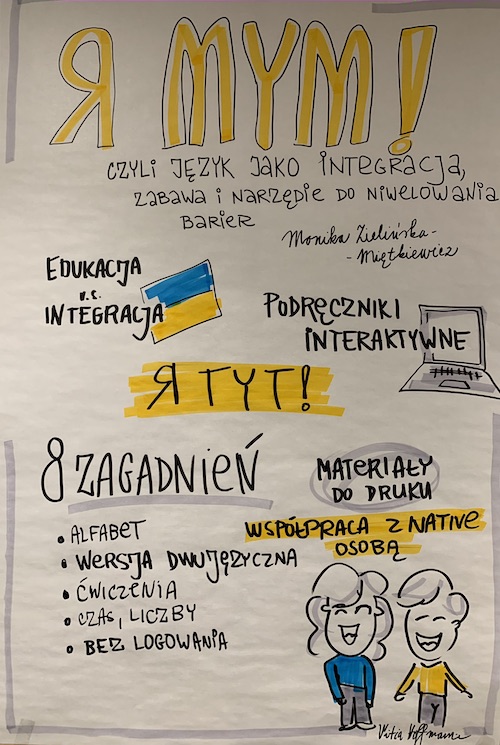 Я МУМ!
CZYLI JĘZYK JAKO INTEGRACJA,
ZABAWA I NARZĘDIE DO NIWELOWANIA
BARIER
Monika Zielińska-
-Miętkiewicz
EDUKACJA
v.s.
INTEGRACJA
PODRĘCZNIKI
INTERAKTYWNE
Я ТУТ!
8 ZAGADNIEŃ
• ALFABET
• WERSJA DWUJĘZYCZNA
• ĆWICZENIA
• CZAS, LICZBY
• BEZ LOGOWANIA
MATERIAŁY
DO DRUKU
WSPÓŁPRACA Z NATIVE
OSOBĄ